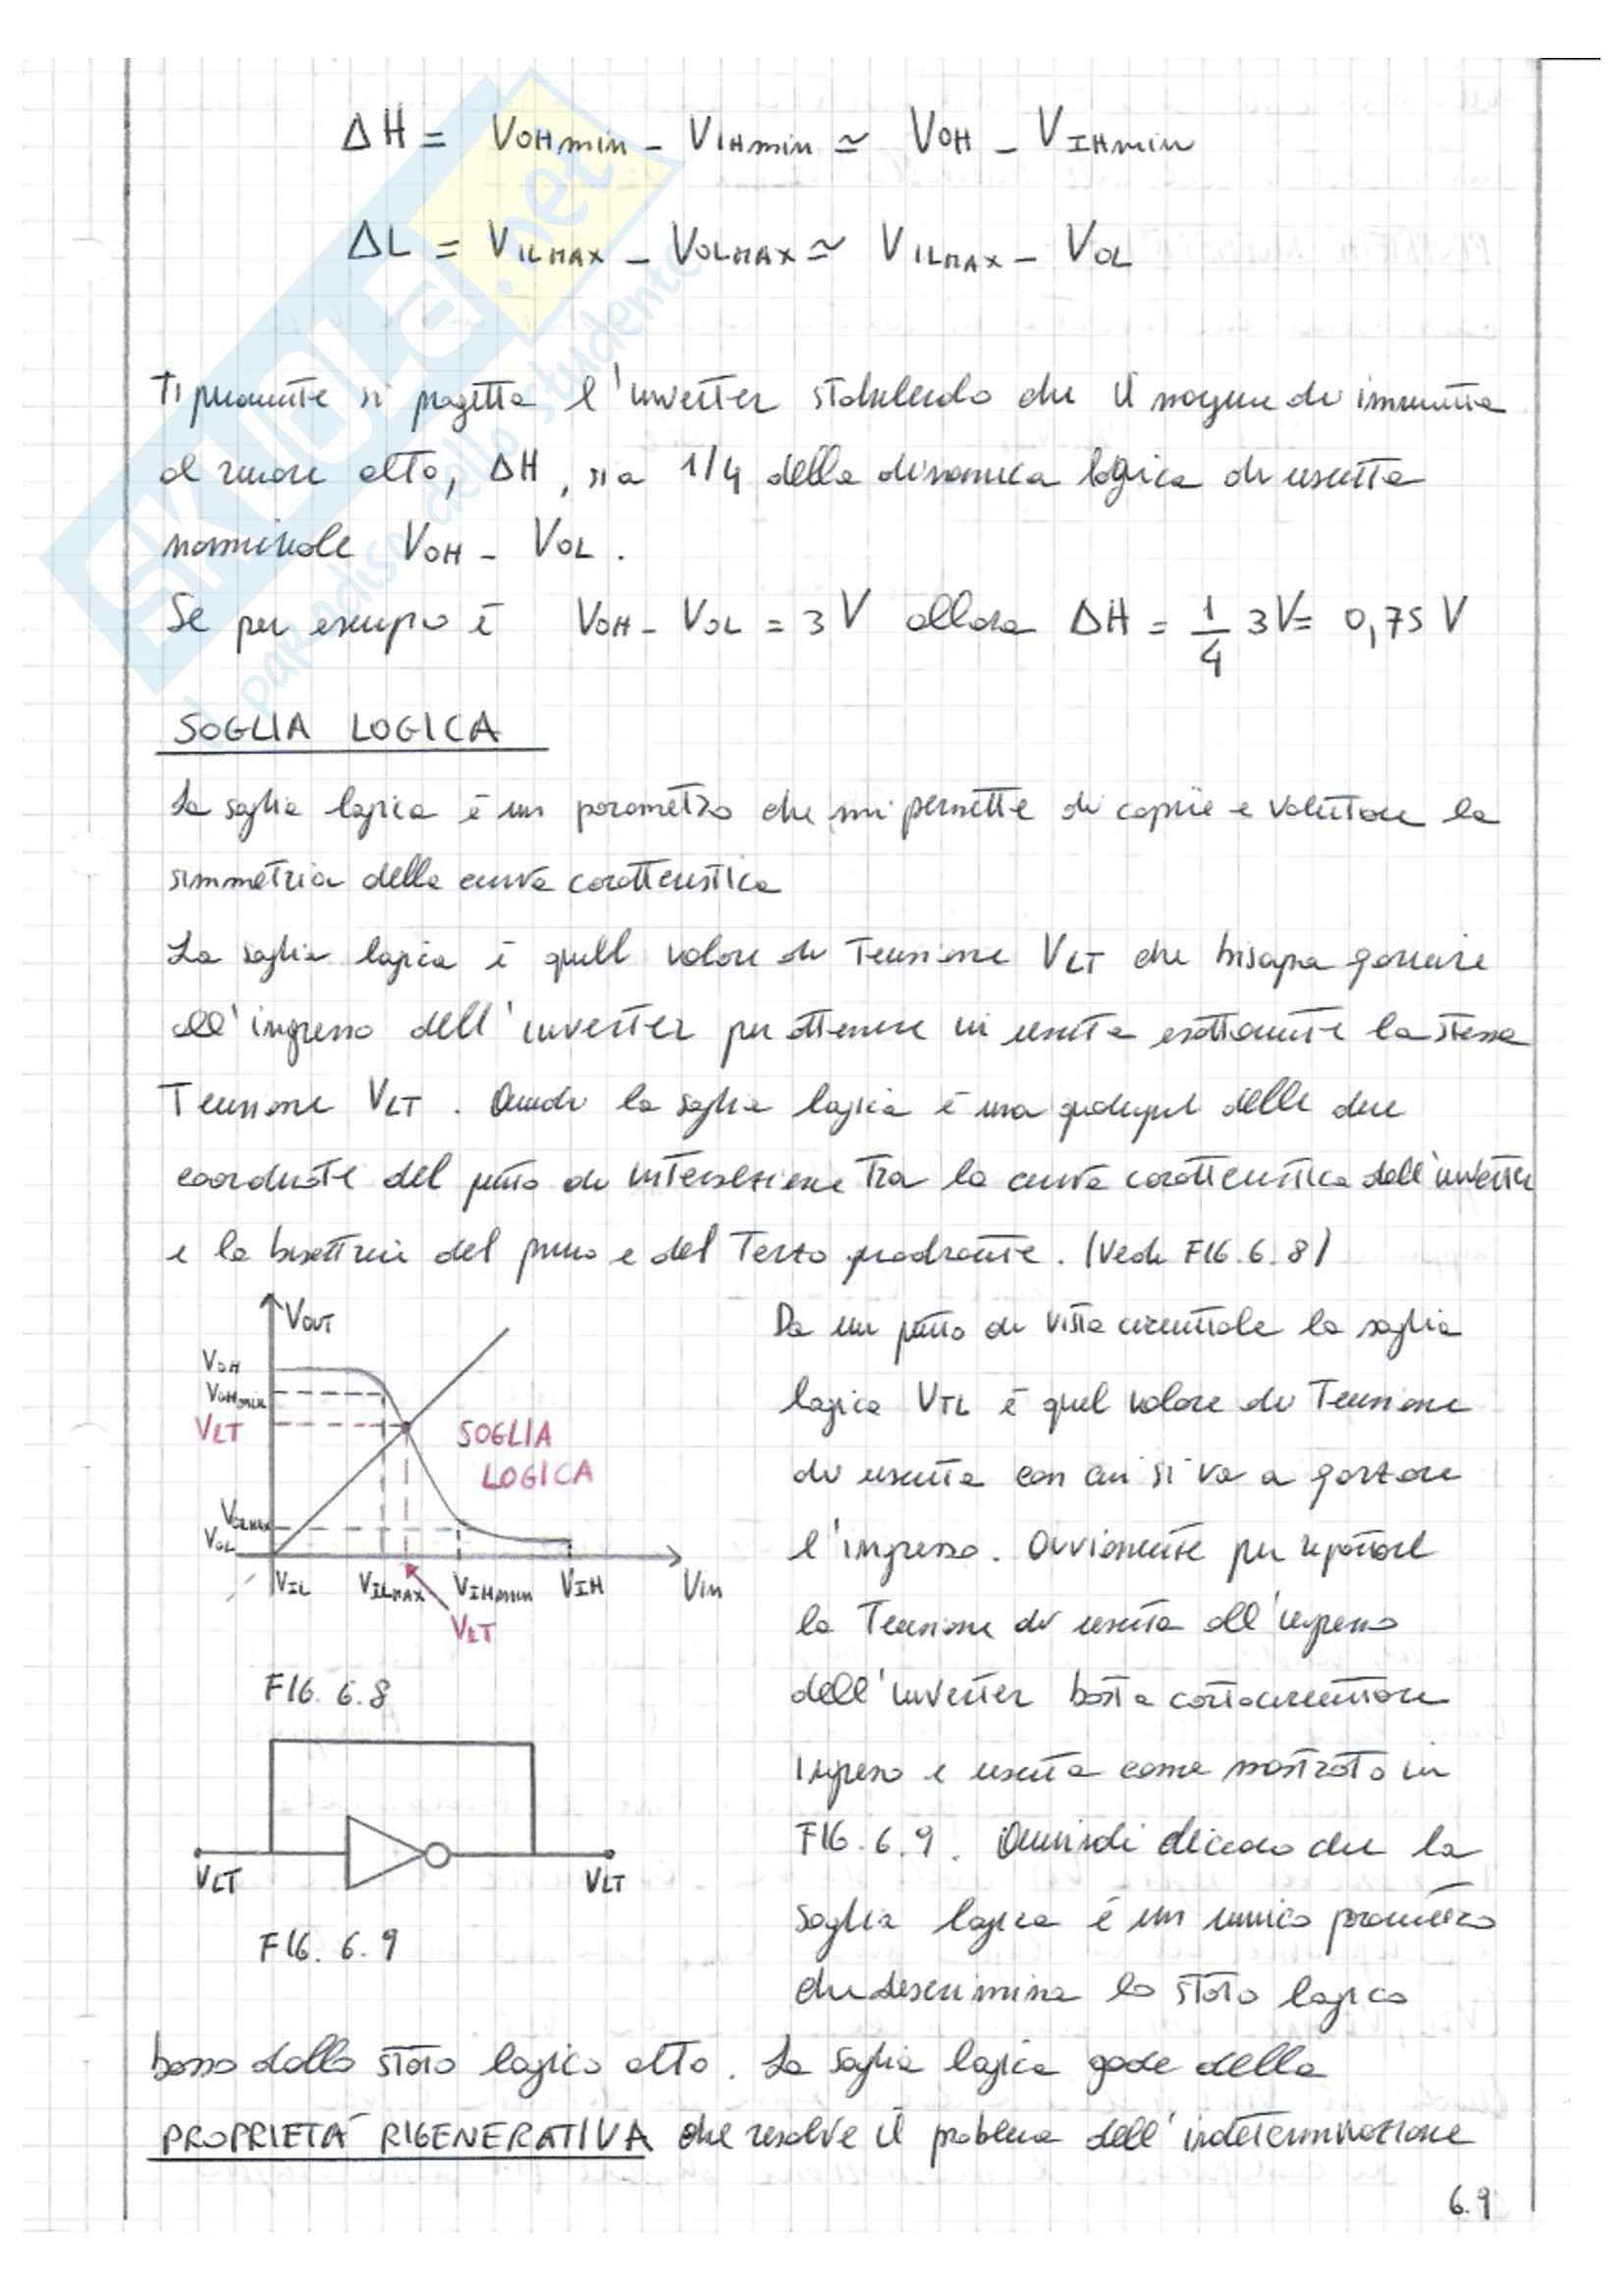 ΔH = VOHmin - VIHmin ≃ VOH - VIHmin
ΔL = VILMAX - VOLMAX ≃ VILMAX - VOL
Tipicamente si progetta l'inverter stabilendo che il margine di immunità
al rumore alto, ΔH, sia 1/4 della dinamica logica di uscita
nominale VOH - VOL.
Se per esempio è VOH - VOL = 3V allora ΔH = 1/4 3V = 0,75 V
SOGLIA LOGICA
La soglia logica è un parametro che mi permette di capire e valutare la
simmetria della curva caratteristica
La soglia logica è quell valore di Tensione VLT che bisogna fornire
all'ingresso dell'inverter per ottenere in uscita esattamente la stessa
Tensione VLT. Quindi la soglia logica è una qualunque delle due
coordinate del punto di intersezione tra la curva caratteristica dell'inverter
e la bisettrice del primo e del Terzo quadrante. (Vedi FIG. 6.8)
VOUT
VOH
VOHmin
VLT
SOGLIA
LOGICA
VOLMAX
VOL
VIL VILMAX VIHmin VIH Vin
VLT
FIG. 6.8
VLT VLT
FIG. 6.9
Da un punto di vista circuitale la soglia
logica VTL è quel valore di Tensione
di uscita con cui si va a forzare
l'ingresso. Ovviamente per riportare
la Tensione di uscita all'ingresso
dell'inverter basta cortocircuitare
ingresso e uscita come mostrato in
FIG. 6.9. Quindi diciamo che la
soglia logica è un unico parametro
che descrimina lo stato logico
basso dallo stato logico alto. La soglia logica gode della
PROPRIETÀ RIGENERATIVA che resolve il problema dell'indeterminazione
6.9
SKUOLA.net
il paradiso dello studente